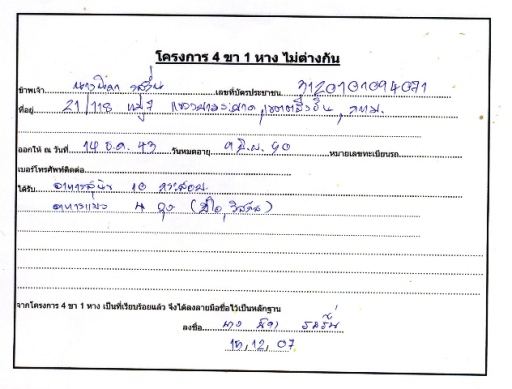 โครงการ 4 ขา 1 หาง ไม่ต่างกัน
ข้าพเจ้า เลขที่บัตรประชาชน 3120101094071
ที่อยู่ 21/118 หมู่ 7 กทม.
ออกให้ ณ วันที่ 14 ธ.ค. 43 วันหมดอายุ หมายเลขทะเบียนรถ
เบอร์โทรศัพท์ติดต่อ
ได้รับ อาหารสุนัข 10 กระสอบ
อาหารแมว 4 ถุง
จากโครงการ 4 ขา 1 หาง เป็นที่เรียบร้อยแล้ว จึงได้ลงลายมือชื่อไว้เป็นหลักฐาน
ลงชื่อ นาง
12, 07